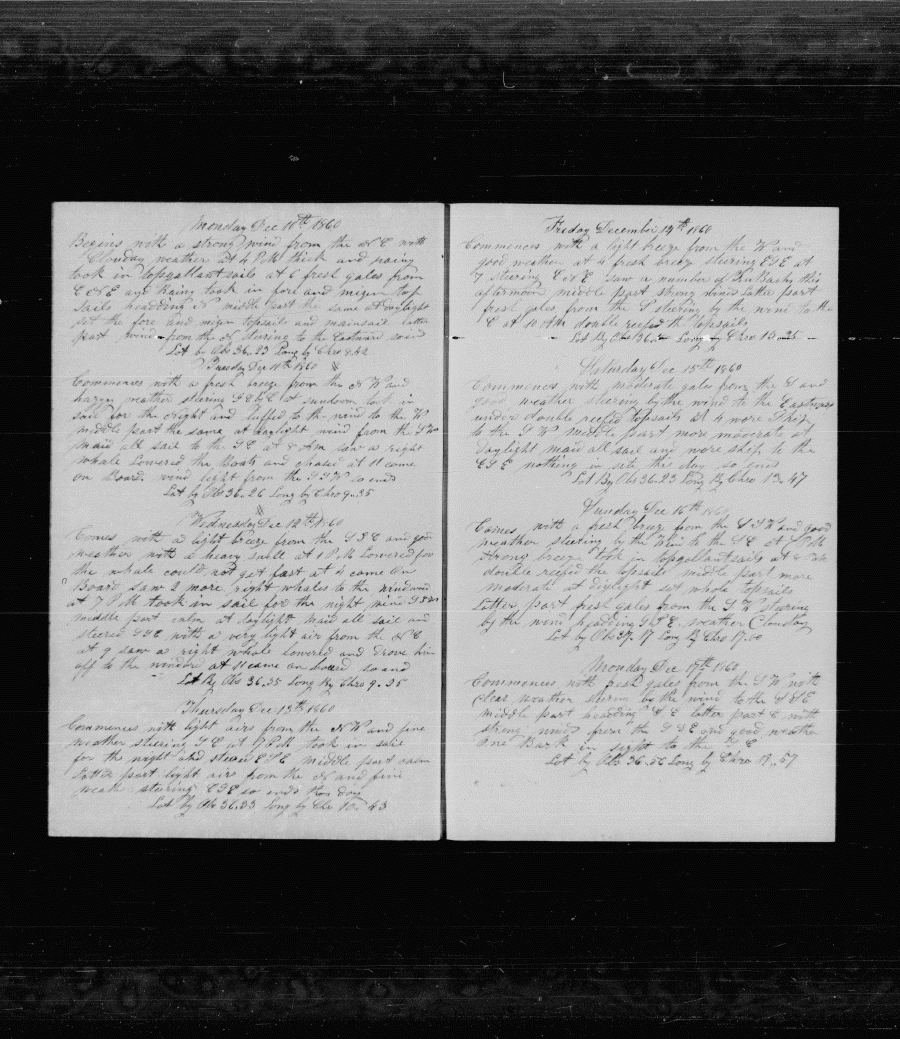 Monday Dec 10th 1860
Begins with a strong wind from the N E with
Clouday weather at 4 P.M thick and rainy
took in topgallantsails at 6 fresh gales from
E N E and Rainy took in fore and mizen top
sails heading N middle part the same at Daylight
set the fore and mizen topsails and mainsail latter
part wind from the N steering to the Eastward so end
Lat by Obs 36.23 Long by Chro 9.42
Tuesday Dec 11th 1860
Commences with a fresh breeze from the N W and
hazy weather steering S E by E at sundown took in
sail for the night and luffed to the wind to the W
middle part the same at daylight wind from the S W
maid all sail to the S E at 8 Am saw a right
whale Lowered the Boats and chased at 11 came
on Board. wind light from the S S W so ends
Lat by Obs 36.26 Long by Chro 9.35
Wednesday Dec 12th 1860
Comes with a light breeze from the S S E and good
weather with a heavy swell at 1 P M Lowered for
the whale could not get fast at 4 came on
Board saw 2 more right whales to the windward
at 7 P M took in sail for the night wind
middle part calm at daylight maid all sail and
steered S S E with a very light air from the N E
at 9 saw a right whale lowered and drove him
off to the window at 11 came on board so and
Lat By Obs 36.35 Long By Chro 9.35
Thursday Dec 13th 1860
Commences with light airs from the N W and fine
weather steering S E at 7 P M took in sail
for the night and steered E S E middle part calm
Latter part light airs from the N and fine
weath steering E S E so ends this day
Lat by Obs 36.33 Long by Chr 10.43
Freday December 14th 1860
Commences with a light breeze from the W and
good weather at 4 fresh breeze steering E S E at
7 steering E N E saw a number of FinBacks this
afternoon middle part strong winds Latter part
fresh gales from the S steering by the wind to the
E at 10 Am double reefed the topsails
Lat By Obs 36. Long by Chro 13.25
Saturday Dec 15th 1860
Commences with moderate gales from the S and
good weather steering by the wind to the Eastward
under double reefed topsails at 4 wore Ship
to the S W middle part more moderate at
Daylight maid all sail and wore ship to the
E S E nothing in site the day so ends
Lat By Obs 36.23 Long By Chro 13.47
Sunday Dec 16th 1860
Comes with a fresh breeze from the S S W and good
weather steering by the Wind to the S E at 7 P.M
strong breeze took in topgallantsails at
double reefed the topsails middle part more
moderate at Daylight set whole topsails
Latter part fresh gales from the S W steering
by the wind heading S E weather Clouday
Lat by Obs 37.17 Long By Chro 17.00
Monday Dec 17th 1860
Commences with fresh gales from the S W with
clear weather steering by the wind to the S S E
middle part heading S E latter part E with
strong winds from the S S E and good weather
one Bark in sight to the N E
Lat by Obs 36.56 Long by Chro 19.57